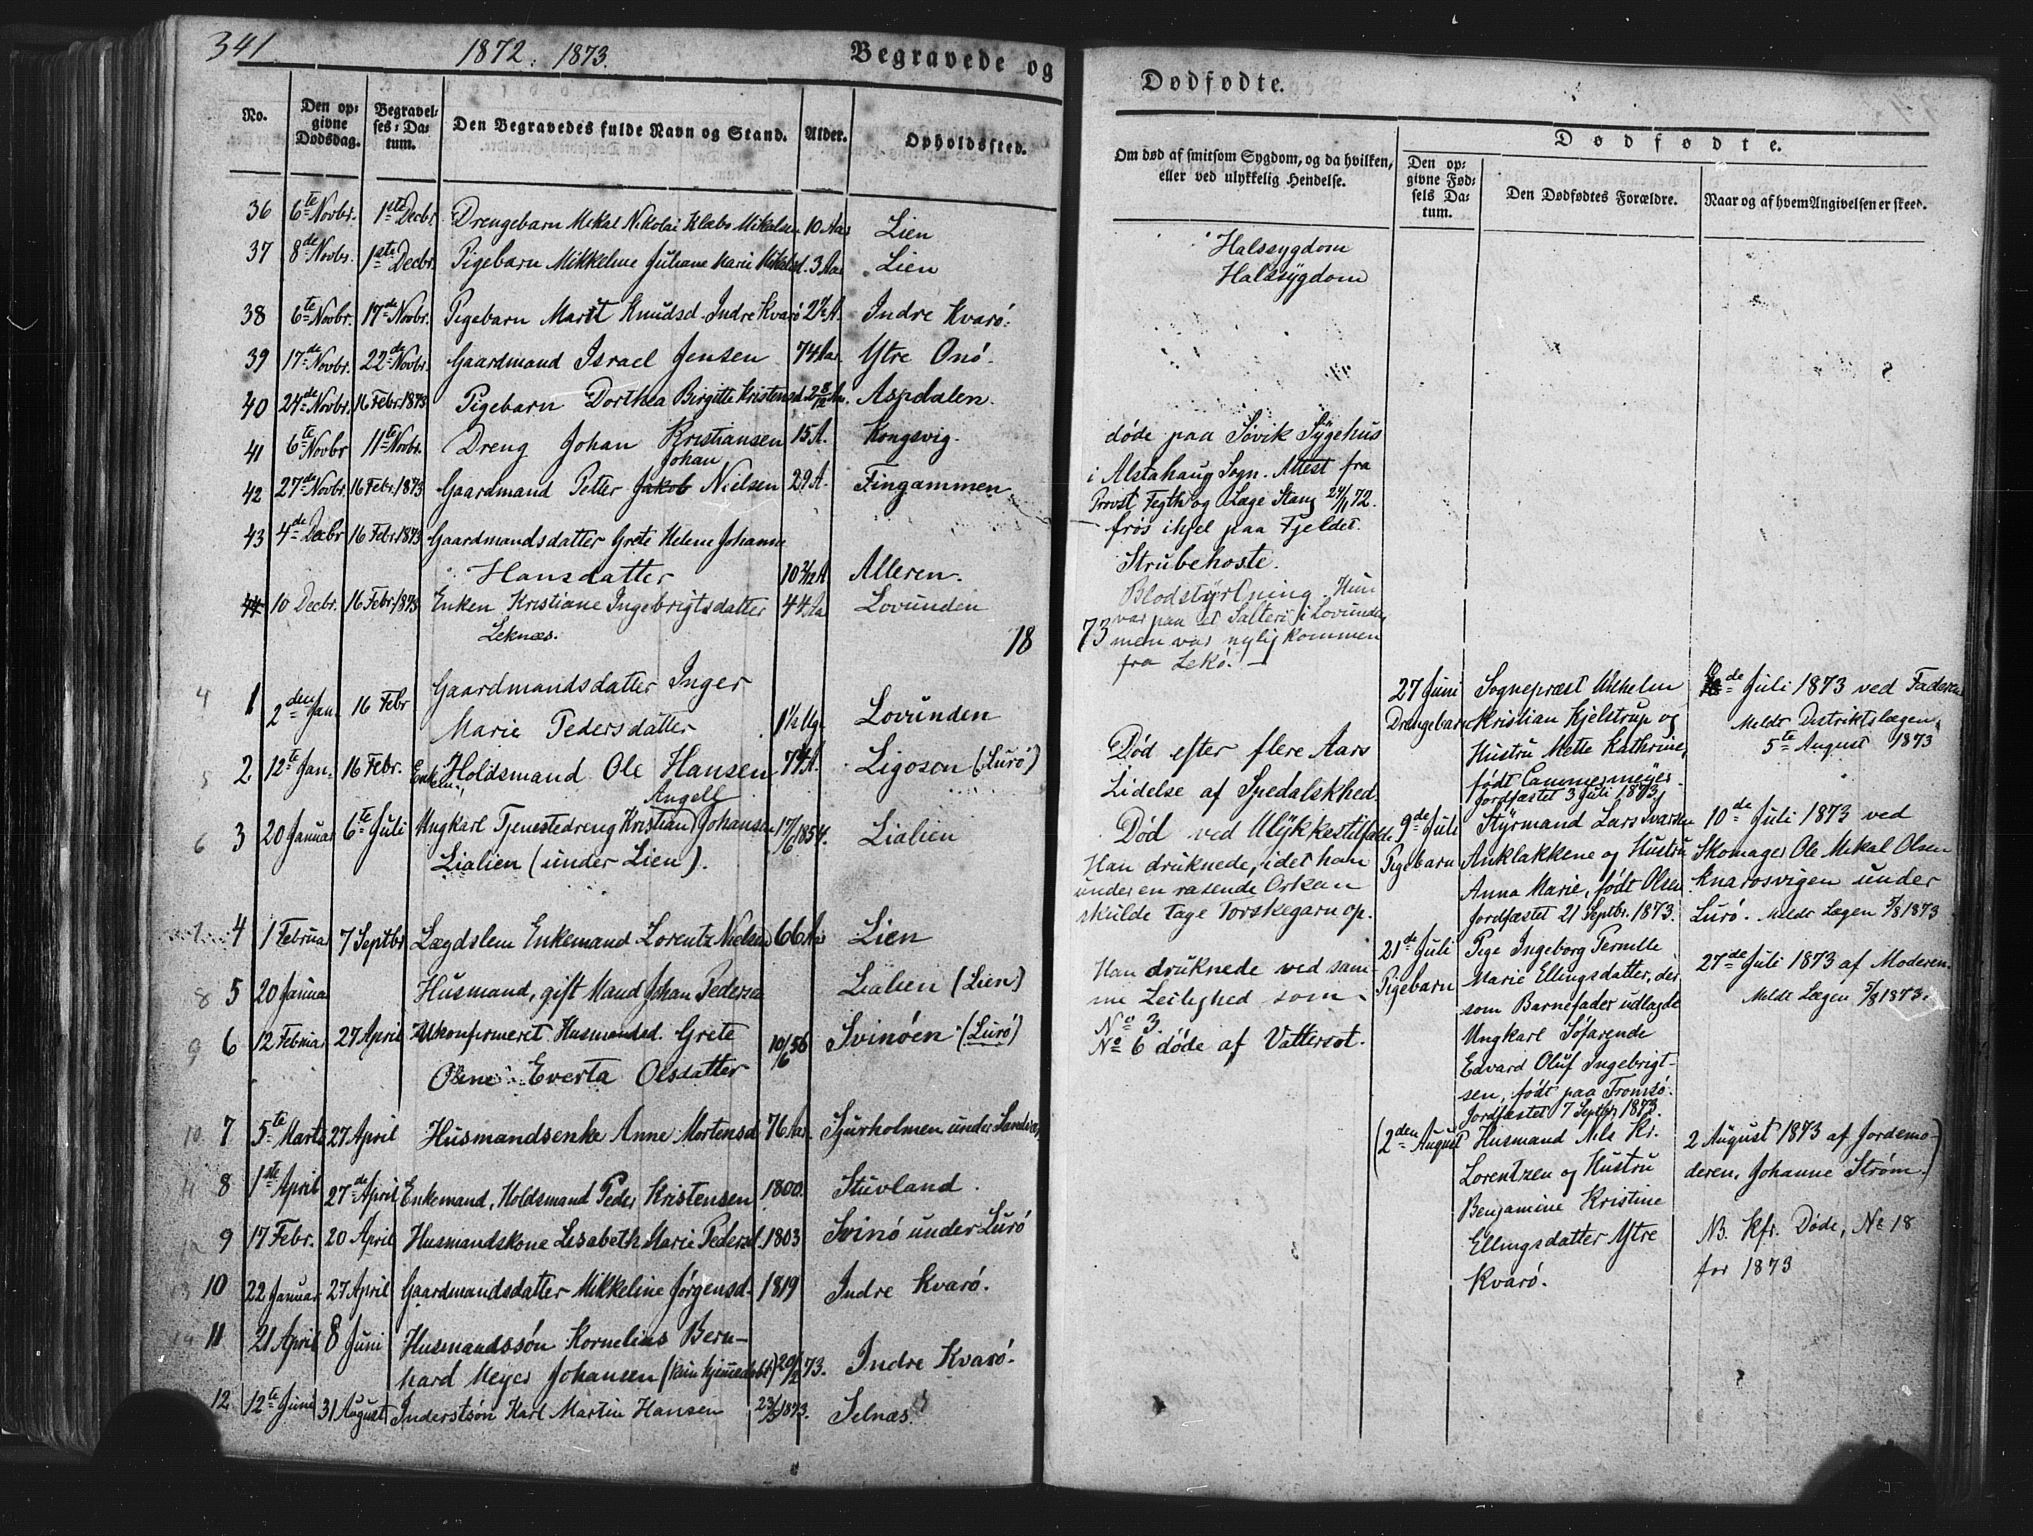 341.
1872. 1873.
Begravede og
No.
Den opgivne Dødsdag.
Begravelses-Datum.
Den Begravedes fulde Navn og Stand.
Alder.
Opholdssted.
36 6te Novbr. 1ste Decbr. Drengebarn Mikal Nikolai Klæbo Mikalsen 10 Aar Lien
37 8de Novbr. 1ste Decbr. Pigebarn Mikkeline Juliane Marie Mikalsd. 3 Aar Lien
38 6te Novbr. 17de Novbr. Pigebarn Marit Knudsd. Indre Kvarø 2½ A. Indre Kvarø.
39 17de Novbr. 22de Novbr. Gaardmand Israel Jensen 74 Aar. Ytre Onø.
40 24de Novbr. 16 Febr. 1873 Pigebarn Dorthea Birgitte Kristensd. 2 8/12 Aar. Aspdalen.
41 6te Novbr 11te Novbr. Dreng Johan Kristiansen 15 A. Kongsvig.
Johan
42 27de Novbr. 16 Febr. 1873 Gaardmand Petter Jakob Nielsen 29 A. Fingammen
43 4de Decbr 16 Febr. 1873 Gaardmandsdatter Grete Helene Johanne
Hansdatter 10 2/12 A. Alleren.
44 10 Decbr. 16 Febr. 1873 Enken Kristiane Ingebrigtsdatter 44 Aar Lovunden
Leknæs.
18
4 1 2den Jan. 16 Febr Gaardmandsdatter Inger
Marie Pedersdatter 1½ Ug. Lovunden
5 2. 12te Jan. 16 Febr. Enkem., Holdsmand Ole Hansen 74 A. Ligosen (Lurø)
Angell
6 3 20 Januar 6te Juli Ungkarl Tjenestedreng Kristian Johansen 17/6 1854. Lialien
Lialien (under Lien).
7 4 1 Februar 7 Septbr. Lægdslem Enkemand Lorentz Nielsen 66 Aar Lien
8 5 20 Januar Husmand, gift Mand Johan Pedersen Lialien (Lien)
9 6 12 Februar 27 April Ukonfirmeret Husmandsd. Grete 10/6 56 Svinøen (Lurø)
Oline Everta Olsdatter
10 7 5te Marts 27 April Husmandsenke Anne Mortensd 76 Aar. Sjurholmen under
11 8 1ste April 27de April Enkemand, Holdsmand Peder Kristensen 1800. Stuvland.
12 9 17 Febr. 20 April Husmandskone Lisabeth Marie Pedersd. 1803 Svinø under Lurø
13 10 22 Januar 27 April Gaardmandsdatter Mikkeline Jørgensd. 1819 Indre Kvarø.
14 11 21 April 8 Juni Husmandssøn Kornelius Bern-
hard Meyer Johansen (kun hjemmedøbt) 20/2 73. Indre Kvarø.
12 12te Juni 31 August Inderstsøn Karl Martin Hansen 23/5 1873. Selnæs.
Dødfødte.
Om død af smitsom Sygdom, og da hvilken,
eller ved ulykkelig Hendelse.
Dødfødte.
Den opgivne Fødsels Datum.
Den Dødfødtes Forældre.
Naar og af hvem Angivelsen er skeed.
Halssygdom
Halssygdom
døde paa Søvik Sygehus
i Alstahaug Sogn. Attest fra
Provst Fegth og Læge Stang 24/11 72.
frøs ihjel paa Fjeldet.
Strubehoste.
Blodstyrtning. Hun
var paa et Salteri i Lovunden
73 men var nylig kommen
fra Lekø.
Død efter flere Aars
Lidelse af Spedalskhed.
Død ved Ulykkestilfælde.
Han druknede, idet han
under en rasende Orkan
skulde tage Torskegarn op.
Han druknede ved sam-
me Leilighed som
No 3.
No 6 døde af Vattersot.
27 Juni
Drengebarn
Sognepræst Wilhelm
Kristian Kjelstrup og
Hustru Mette Kathrine,
født Cammermeyer.
Jordfæstet 3 Juli 1873.
Juli 1873 ved Faderen
Meldt Distriktslægen
5te August 1873
9de Juli
Pigebarn
Styrmand Lars Ivarsen
Anklakkene og Hustru
Anna Marie, født Olsen
Jordfæstet 21 Septbr. 1873.
10de Juli 1873 ved
Skomager Ole Mikal Olsen
Knarosvigen under
Lurø. Meldt Lægen 5/8 1873
21de Juli
Pigebarn
Pige Ingeborg Pernille
Marie Ellingsdatter, der
som Barnefader udlagde
Ungkarl Søfarende
Edvard Oluf Ingebrigt-
sen, født paa Tromsø.
Jordfæstet 7 Septbr 1873.
27de Juli 1873 af Moderen.
Meldt Lægen 5/8 1873.
(2den August
Husmand Nils Kr.
Lorentzen og Hustru
Benjamine Kristine
Ellingsdatter Ytre
Kvarø.
2 August 1873 af Jordemo-
deren, Johanne Strøm.)
NB. Kfr. Døde, No 18
for 1873